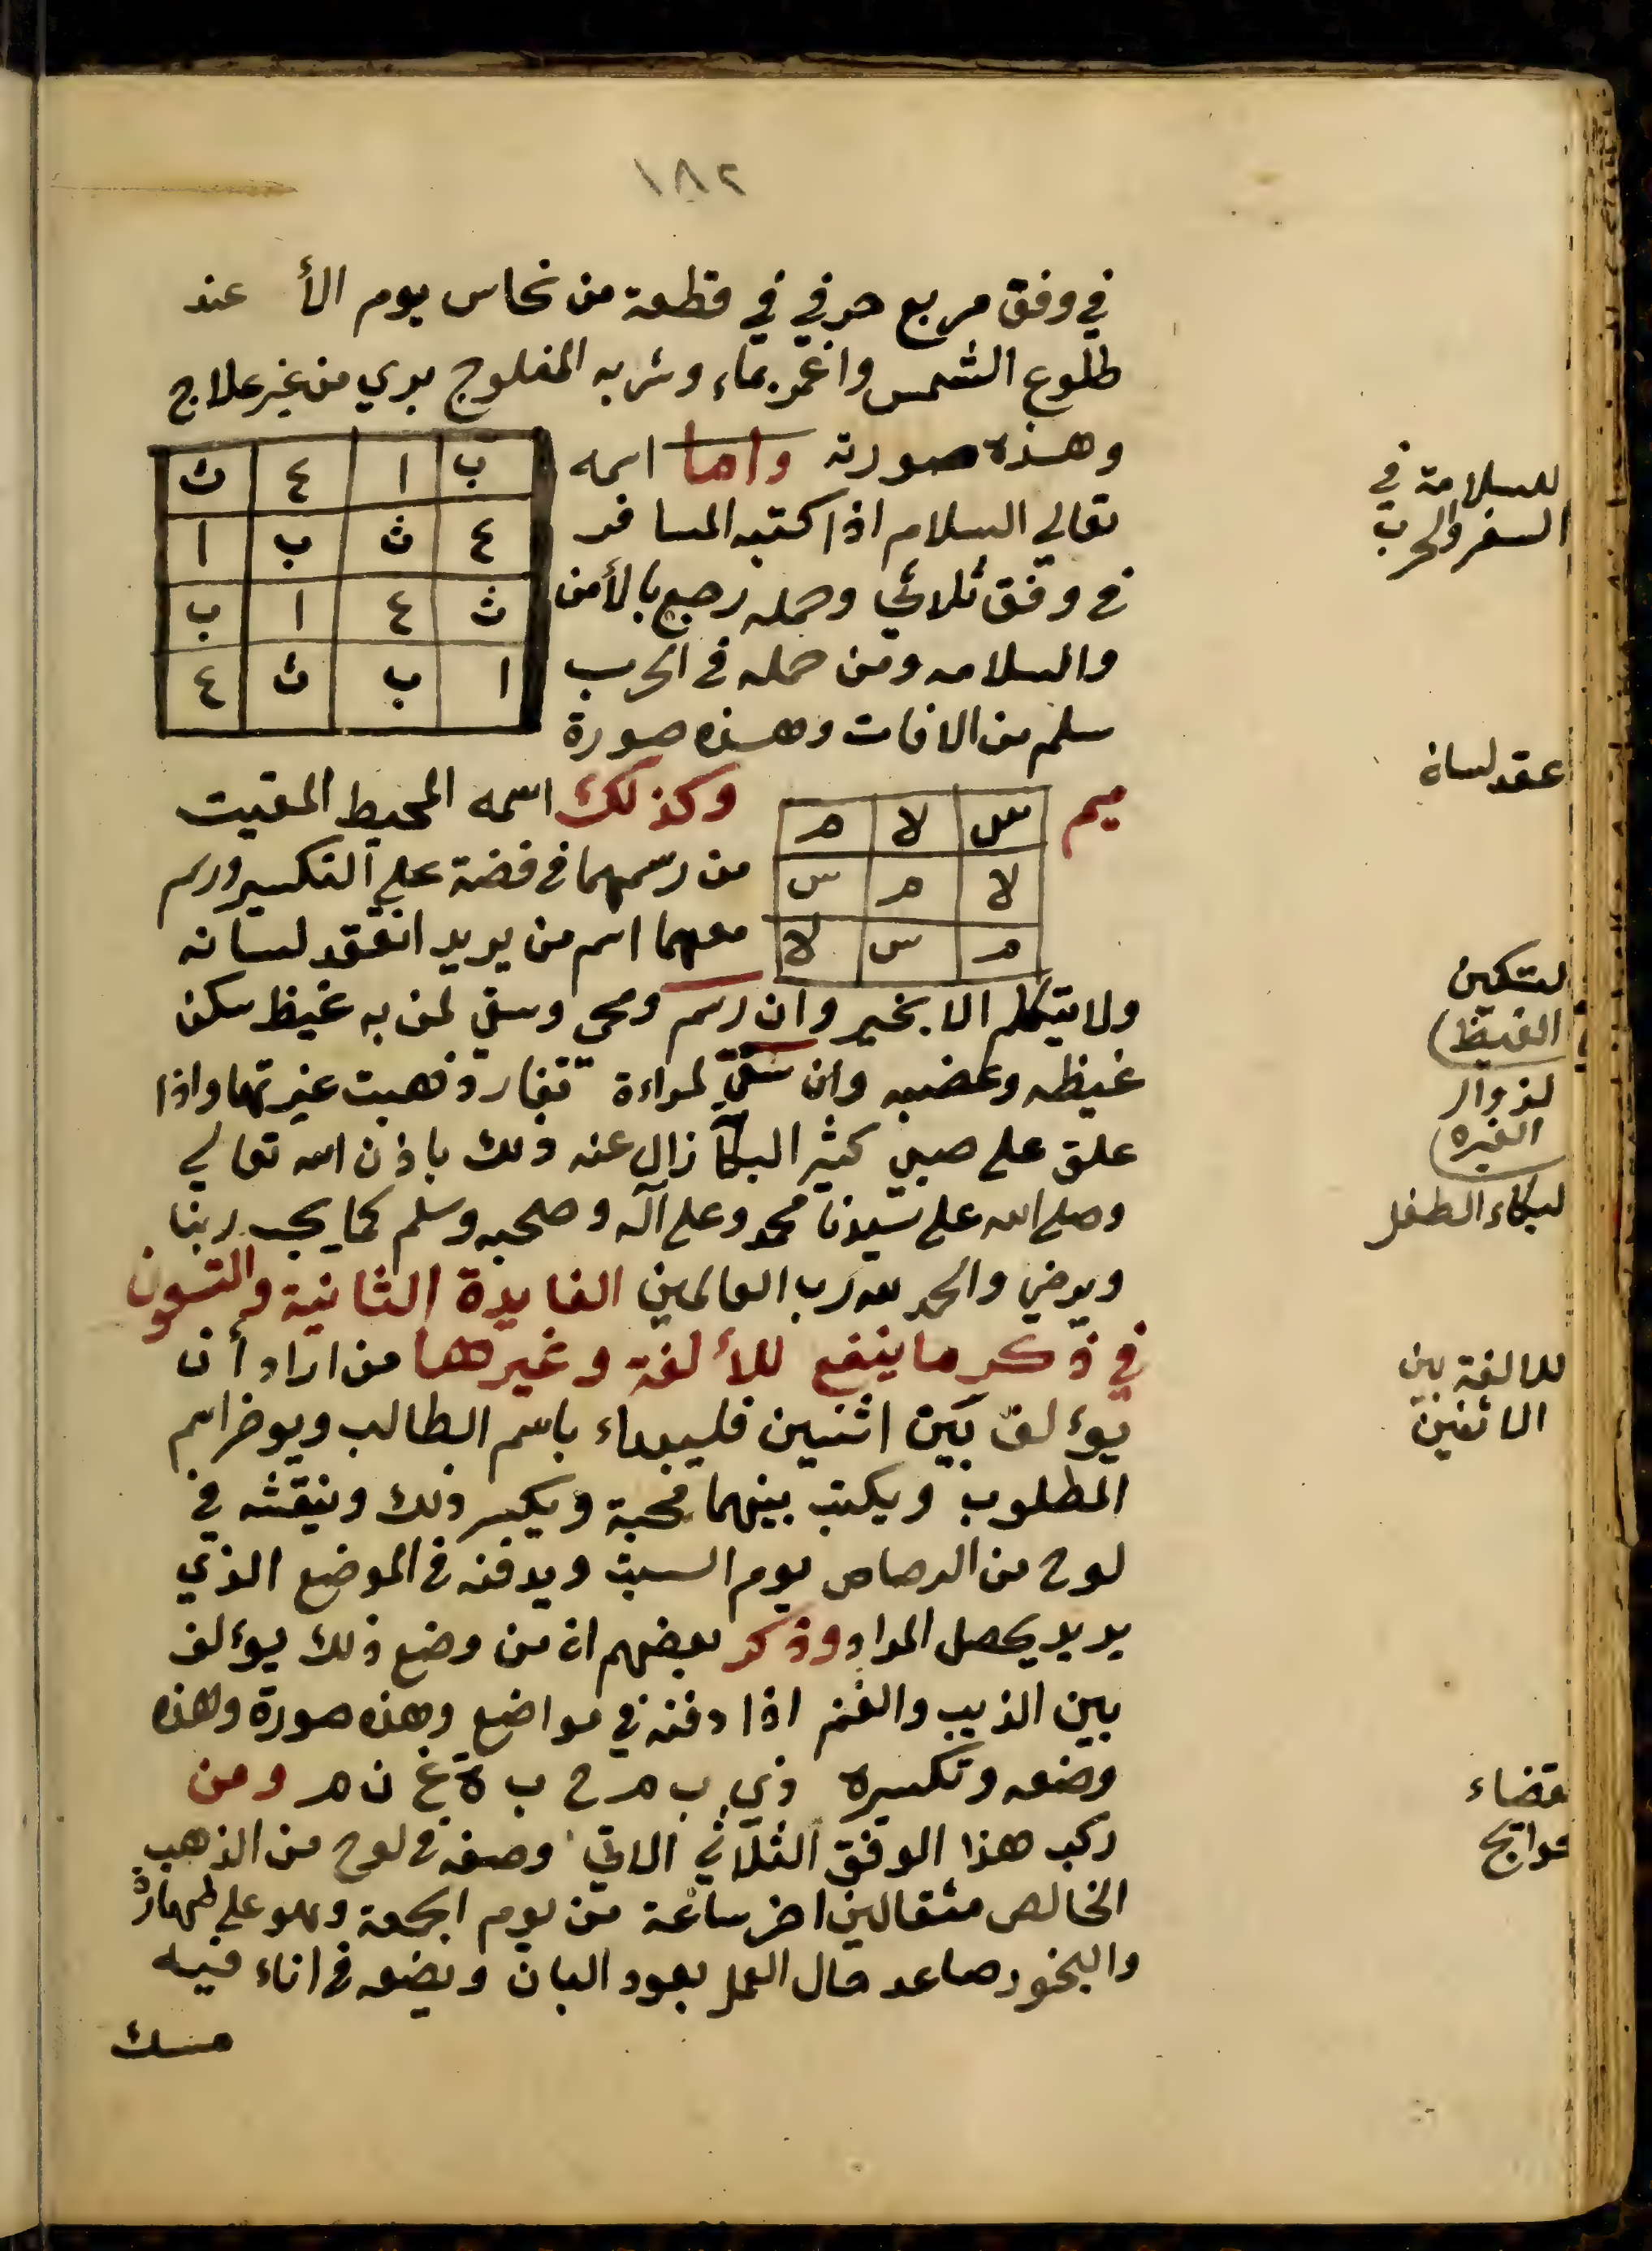 ١٨٢
في وفق مربع حرفي في قطعة من نحاس يوم الأ عند
طلوع الشمس واغمر بماء وشربه المفلوج بري من غير علاج
وهذه صورته واما اسمه
ب ا ع ث
ع ث ب ا
ث ع ا ب
ا ب ث ع
تعالي السلام اذا كتبه المسافر
في وفق ثلاثي وحمله رجع بالأمن
والسلامه ومن حمله في الحرب
سلم من الافات وهذه صورة
ميم
س لا م
لا م س
م س لا
وكذلك اسمه المحيط المقيت
من رسمهما في فضة علي التكسير ورسم
معهما اسم من يريد انعقد لسانه
ولا يتكلم الا بخير وان رسم ومحي وسقي لمن به غيظ سكن
غيظه وغضبه وان سقي لمراءة تغار ذهبت غيرتها واذا
علق على صبي كثير البكآ زال عنه ذلك باذن الله تعالي
وصلي الله على سيدنا محمد وعلى آله وصحبه وسلم كما يحب ربنا
ويرضي والحمد لله رب العالمين الفايدة الثانية والتسعون
في ذكر ما ينفع للألفة وغيرها من اراد أن
يؤلف بين اثنين فليبداء باسم الطالب ويوخر اسم
المطلوب ويكتب بينهما محبة ويكسر ذلك وينقشه في
لوح من الرصاص يوم السبت ويدفنه في الموضع الذي
يريد يحصل المراد وذكر بعضهم ان من وضع ذلك يؤلف
بين الذيب والغنم اذا دفنه في مواضع وهذه صورة وهذه
وضعه وتكسيره ذ ي ب م ح ب ة غ ن م ومن
ركب هذا الوفق الثلاثي الاتي وصفه في لوح من الذهب
الخالص مثقالين اخر ساعة من يوم الجمعة وهو على طهارة
والبخور صاعد حال العمل بعود البان ويضعه في اناء فيه
مسك
للسلامة في
السفر والحرب
عقد لسان
لتسكين
الغيظ
لزوال
الغيره
لبكاء الطفل
للالفة بين
الاثنين
قضاء
حوايج